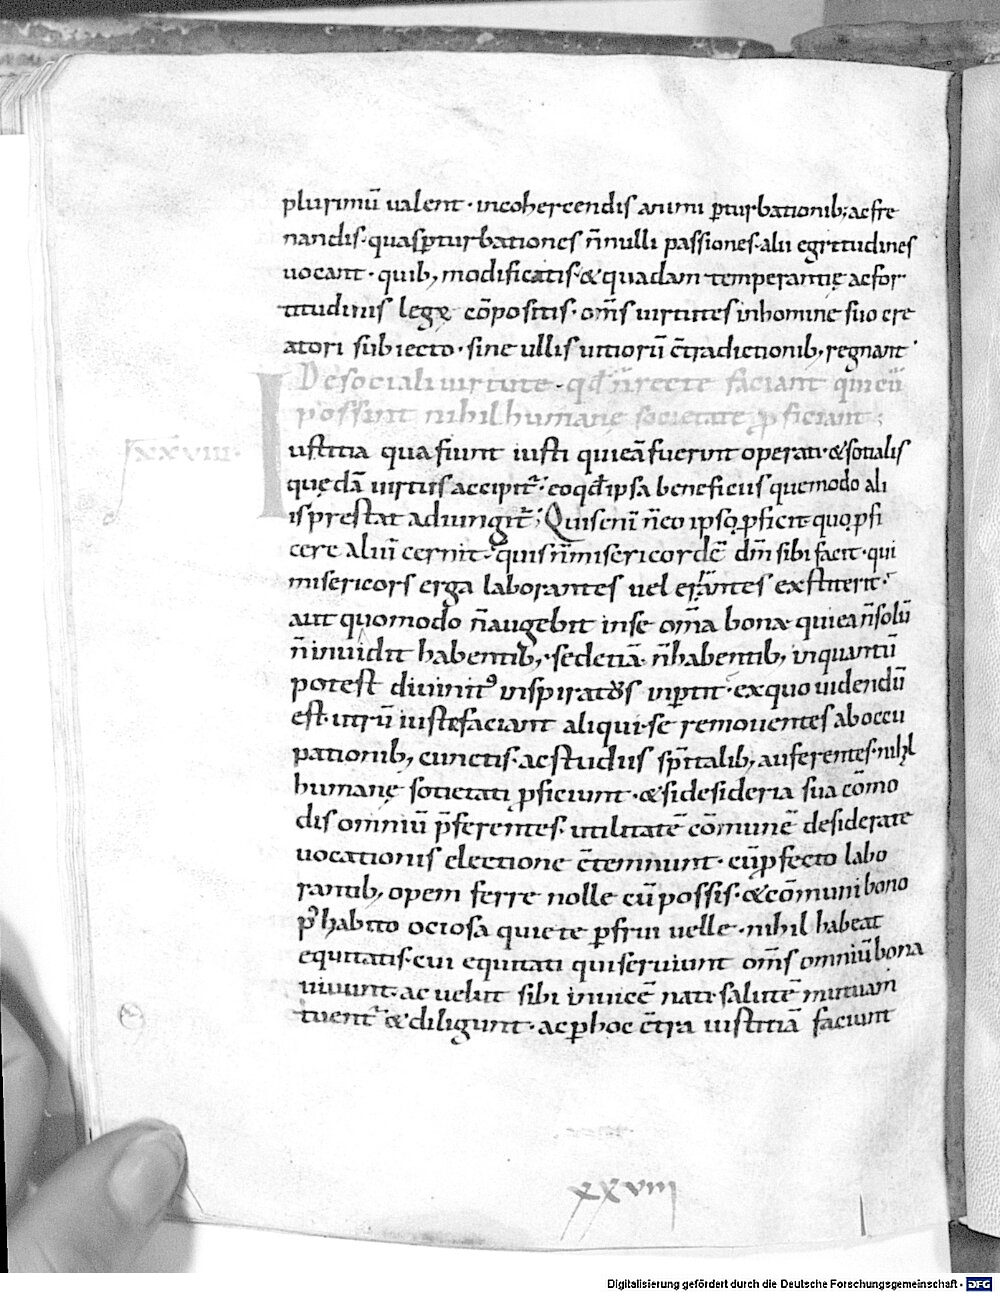 plurimū ualent · incohercendis animi p̱turbationib; ac fre
nandis · quas p̱turbationes n̄nulli passiones · alii egritudines
uocant · quib; modificatis · & quadam temperantię ac for
titudinis lege cōpositis · om̄s uirtutes in homine suo cre
atori subiecto · sine ullis uitiorū c̄tradictionib; regnant ·
De sociali uirtute · qđ n̄ recte faciant qui cū
possint nihil humanę societate ꝓficiant ;
xxviii ·
Iustitia qua fiunt iusti qui eā fuerint operati · & sotialis
quędā uirtus accipit᷑ · eo qđ ipsa beneficiis quemodo ali
is prestat adiungit᷑ ; Quis eni n̄ eo ipso ꝓficit quo ꝓfi
cere aliū cernit · quis n̄ misericordē dm̄ sibi facit · qui
misericors erga laborantes uel errantes exstiterit ·
aut quomodo n̄ augebit in se om̄a bona qui ea n̄ solū
n̄ inuidit habentib; · sed etiā n̄ habentib; inquantū
potest diuinit᷒ inspiratus inp̱tit · ex quo uidendū
est · utrū iuste faciant aliqui · se remouentes ab occu
pationib; cunctis · ac studiis sp̄italib; auferentes · nihil
humanę sotietati ꝓficiunt · & si desideria sua cōmo
dis omniū p̄ferentes · utilitatē cōmunē desiderate
uocationis electione c̄temnunt · cū ꝓfecto labo
rantib; opem ferre nolle cū possis · & cōmuni bono
p᷒ habito ociosa quiete p̱frui uelle · nihil habeat
equitatis · cui equitati qui seruiunt om̄s omniū bona
uiuunt · ac uelut sibi inuicē nati · salutē mutuam
tuent᷑ & diligunt · ac p̱ hoc c̄tra iustitiā faciunt
xxviii
Digitalisierung gefördert durch die Deutsche Forschungsgemeinschaft - DFG